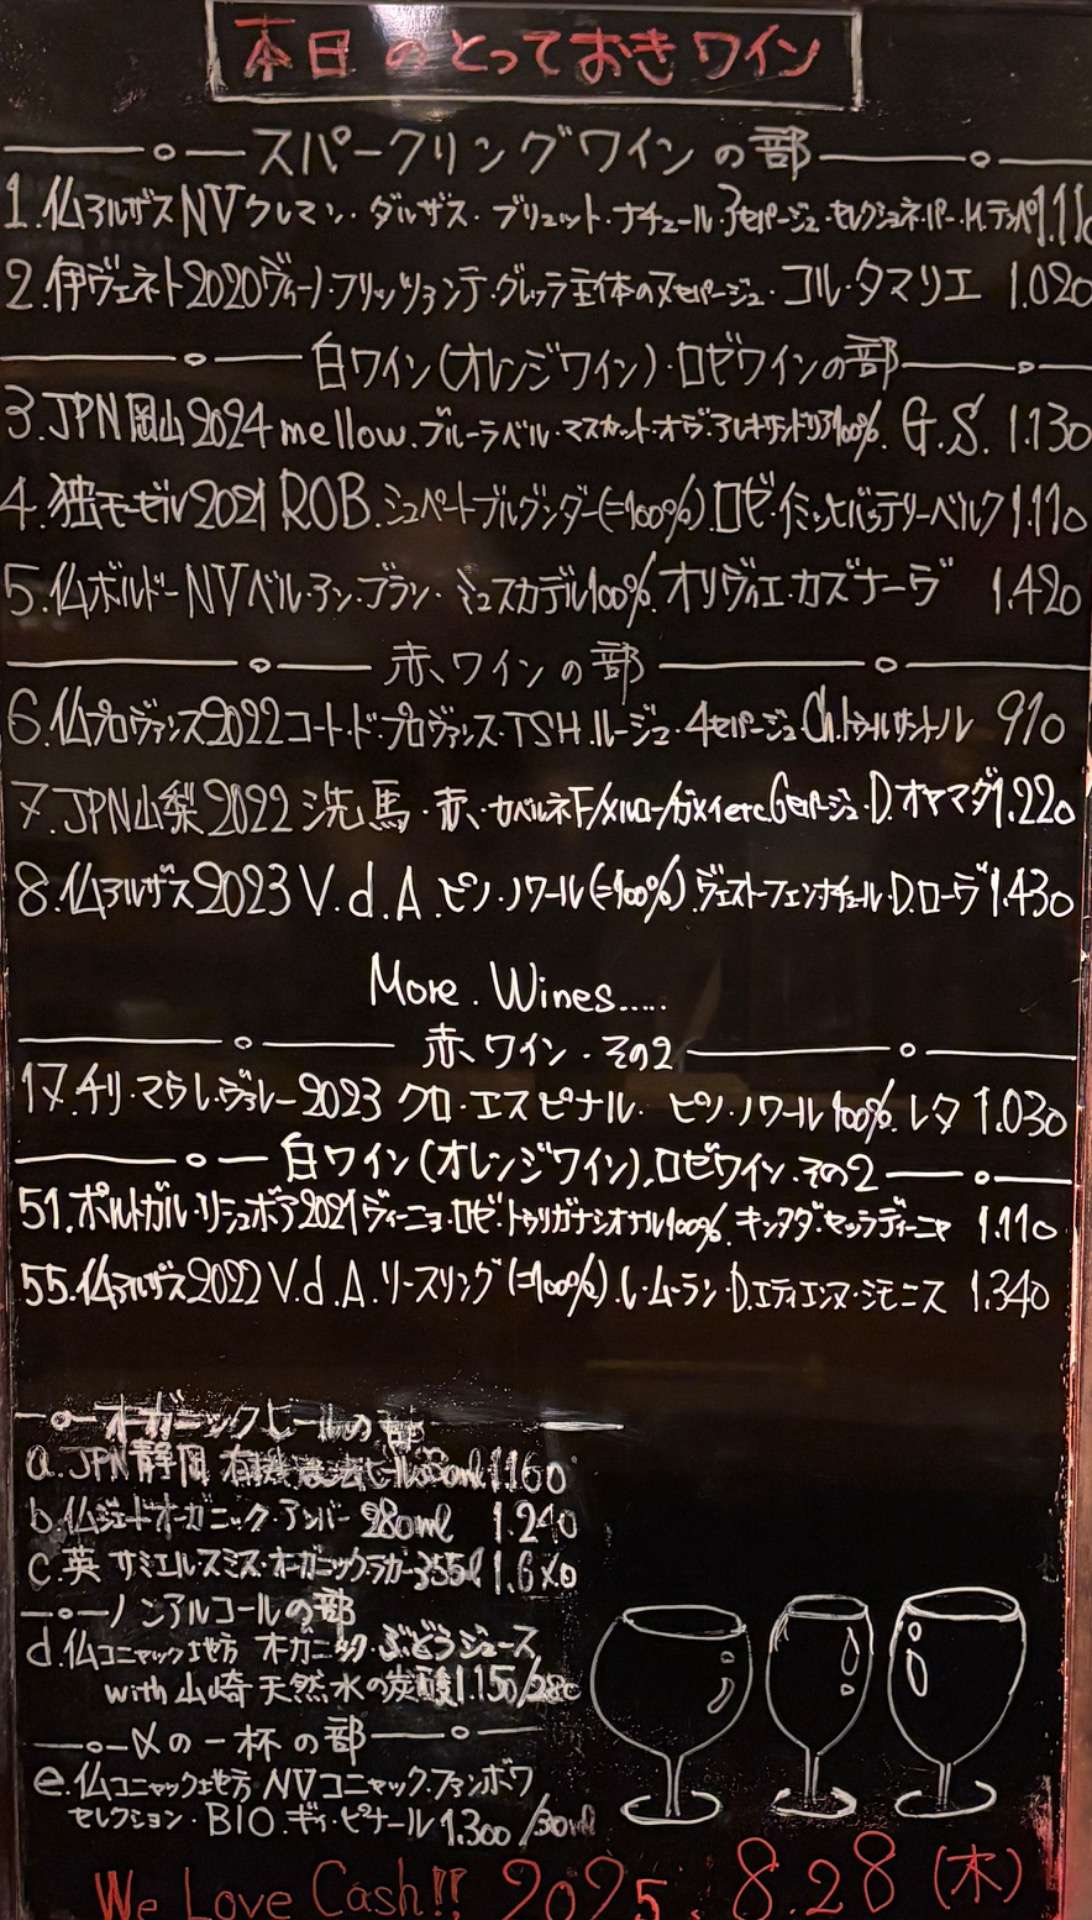 本日のとっておきワイン
スパークリングワインの部
1.仏アルザスNVクレマン・ダルザス・ブリュット・ナチュール・3セパージュ・セレクシオネ・パー・M.テンペ 1.11
2.伊ヴェネト2020ヴィーノ・フリッツァンテ・グレッラ主体のヌセパージュ・コル・タマリエ 1.020
白ワイン(オレンジワイン)・ロゼワインの部
3.JPN岡山2024 mellow.ブルーラベル・マスカット・オヴ・アレキサンドリア100%. G.S. 1.130
4.独モーゼル2021 ROB.シュペートブルグンダー(=100%).ロゼ・イミッヒバッテリーベルク 1.110
5.仏ボルドーNVベル・アン・ブラン・ミュスカデル100%.オリヴィエ・カズナーヴ 1.420
赤ワインの部
6.仏プロヴァンス2022コート・ド・プロヴァンス・TSH.ルージュ・4セパージュ Ch.トゥールサントル 910
7.JPN山梨2022 洗馬・赤・カベルネF/メルロー/ガメイetc.6セパージュ・D.オヤマダ 1.220
8.仏アルザス2023 V.d.A.ピノ・ノワール(=100%).ヴェストーフェン・ナチュール・D.ローヴ 1.430
More.Wines.....
赤ワイン・その2
17.チリ・マウレ・ヴァレー2023 クロ・エスピナル・ピノ・ノワール100%.レタ 1.030
白ワイン(オレンジワイン).ロゼワイン.その2
51.ポルトガル・リシュボア2021ヴィーニョ・ロゼ・トゥリガナシオナル100%.キンタダ・セッラディーニャ 1.110
55.仏アルザス2022 V.d.A.リースリング(=100%).ル・ムーラン・D.エティエンヌ・シモニス 1.340
オーガニックビールの部
a.JPN静岡 有機農法ビール 1160
b.仏ジェードオーガニック・アンバー 280ml 1.240
c.英 サミエルスミス・オーガニックラガー355l 1.6
ノンアルコールの部
d.仏コニャック地方 オーガニック・ぶどうジュース
with山崎天然水の炭酸 1.150/280
〆の一杯の部
e.仏コニャック地方 NVコニャック・ファンボワ
セレクション・BIO.ギィ・ピナール 1.300/30ml
We Love Cash!! 2025.8.28(木)